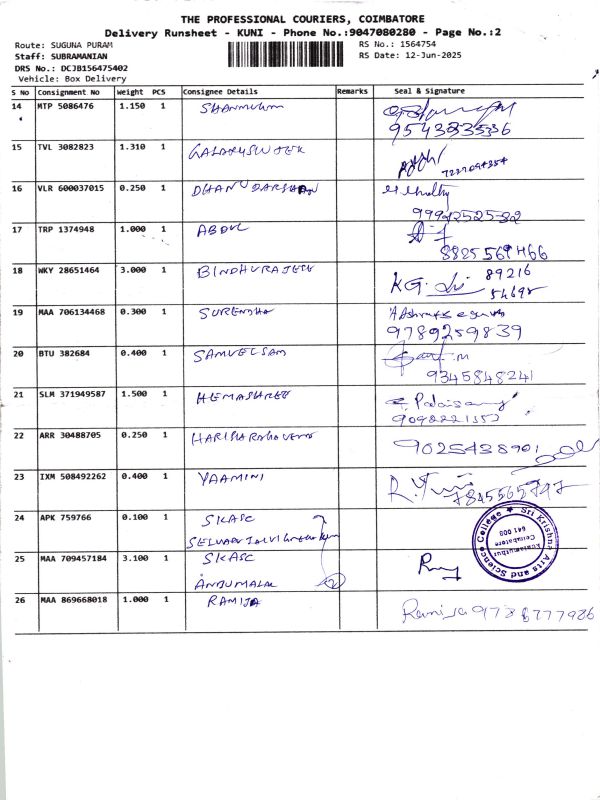 THE PROFESSIONAL COURIERS, COIMBATORE
Delivery Runsheet - KUNI - Phone No.:9047080280 - Page No.:2
Route: SUGUNA PURAM
Staff: SUBRAMANIAN
DRS No.: DCJB156475402
Vehicle: Box Delivery
RS No.: 1564754
RS Date: 12-Jun-2025
S No Consignment No Weight PCS Consignee Details Remarks Seal & Signature
14 MTP 5086476 1.150 1 SHANMUGAM
9543233536
15 TVL 3082823 1.310 1
16 VLR 600037015 0.250 1 DHANUDARSHAN
9994252532
17 TRP 1374948 1.000 1 ABDUL
8825569466
18 WKY 28651464 3.000 1 BINDHURAJESH KG. 89216
54698
19 MAA 706134468 0.300 1 SURENDHA
9789259839
20 BTU 382684 0.400 1 SAMUELSAM
9345848241
21 SLM 371949587 1.500 1 HEMASHREE
9098221352
22 ARR 30488705 0.250 1 9025438901
23 IXM 508492262 0.400 1 YAAMINI
7845565797
24 APK 759766 0.100 1 SKASC
25 MAA 709457184 3.100 1 SKASC
ANJUMALAR
Sri Krishna Arts and Science College
Kuniamuthur
Coimbatore
641 008
26 MAA 869668018 1.000 1 RAMIJA Ramija 9788777986